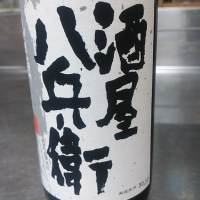 酒屋
八兵衛